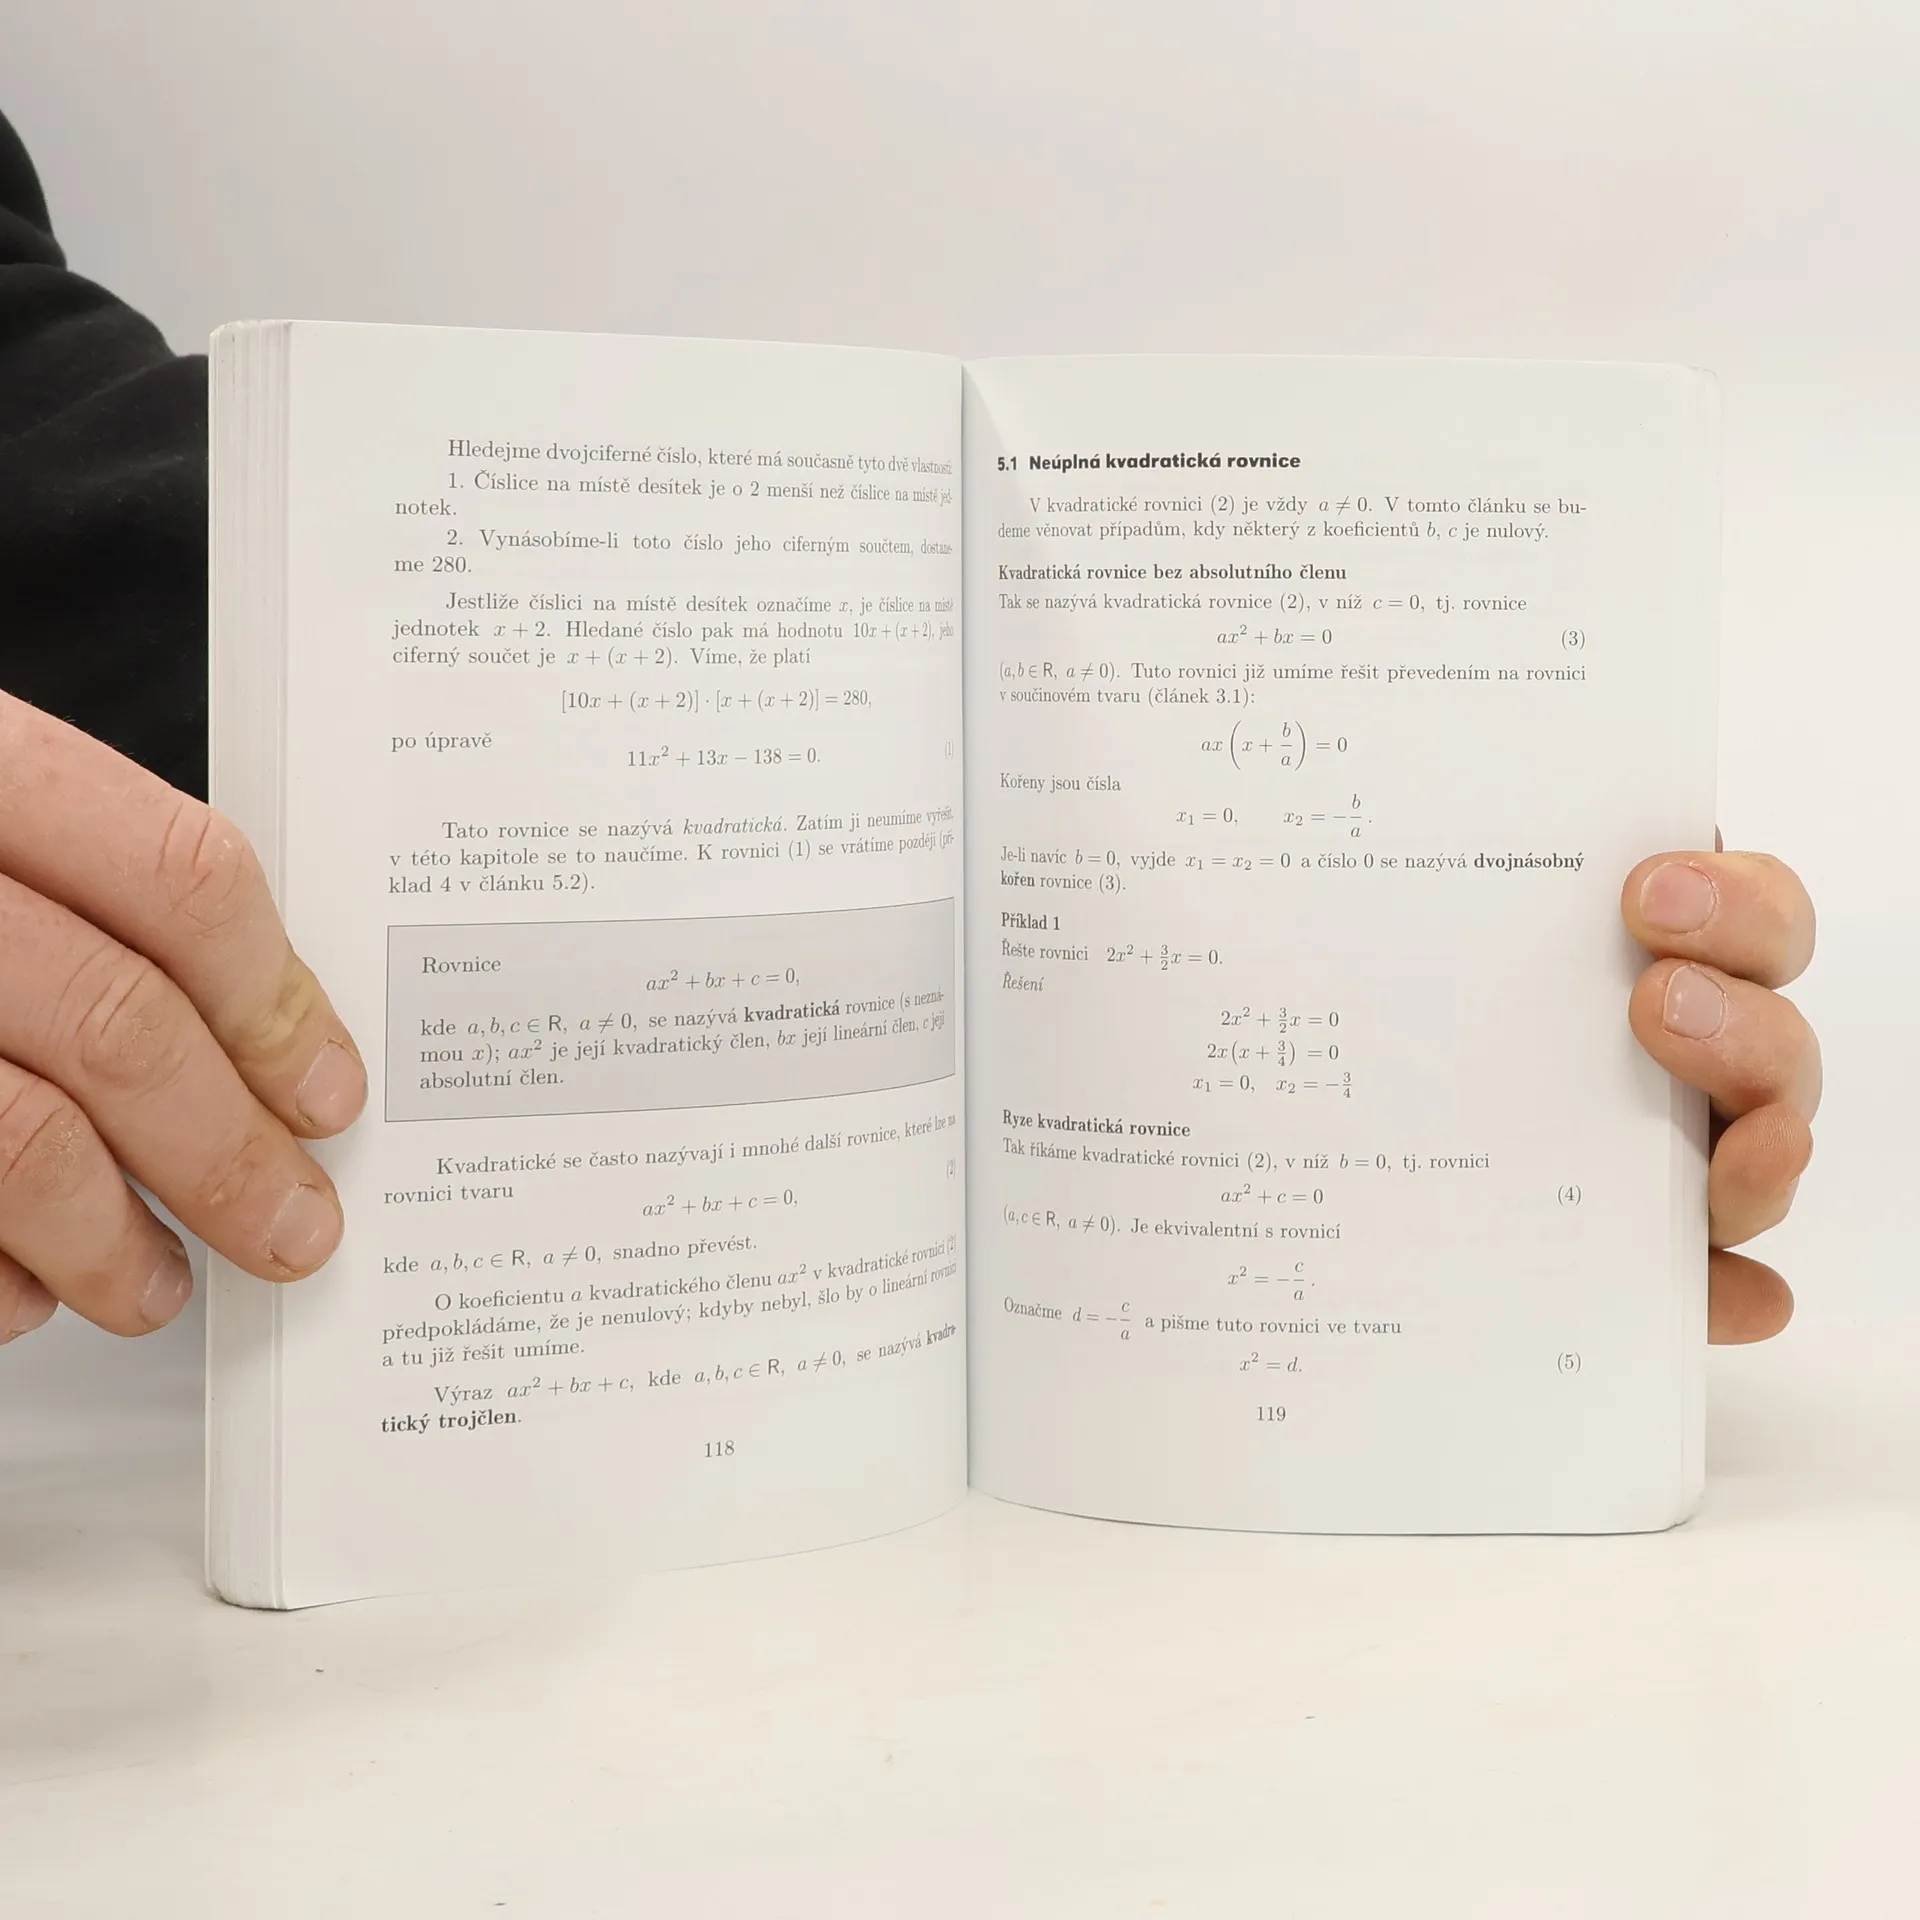 Hledejme dvojciferné číslo, které má současně tyto dvě vlastnosti:
1. Číslice na místě desítek je o 2 menší než číslice na místě jed-
notek.
2. Vynásobíme-li toto číslo jeho ciferným součtem, dostane-
me 280.
Jestliže číslici na místě desítek označíme x, je číslice na místě
jednotek x + 2. Hledané číslo pak má hodnotu 10x + (x + 2), jeho
ciferný součet je x + (x + 2). Víme, že platí
[10x + (x + 2)] · [x + (x + 2)] = 280,
po úpravě
11x² + 13x − 138 = 0. (1)
Tato rovnice se nazývá kvadratická. Zatím ji neumíme vyřešit,
v této kapitole se to naučíme. K rovnici (1) se vrátíme později (pří-
klad 4 v článku 5.2).
Rovnice
ax² + bx + c = 0,
kde a, b, c ∈ R, a ≠ 0, se nazývá kvadratická rovnice (s nezná-
mou x); ax² je její kvadratický člen, bx její lineární člen, c její
absolutní člen.
Kvadratické se často nazývají i mnohé další rovnice, které lze na
rovnici tvaru
ax² + bx + c = 0, (2)
kde a, b, c ∈ R, a ≠ 0, snadno převést.
O koeficientu a kvadratického členu ax² v kvadratické rovnici (2)
předpokládáme, že je nenulový; kdyby nebyl, šlo by o lineární rovnici
a tu již řešit umíme.
Výraz ax² + bx + c, kde a, b, c ∈ R, a ≠ 0, se nazývá kvadra-
tický trojčlen.
118
5.1 Neúplná kvadratická rovnice
V kvadratické rovnici (2) je vždy a ≠ 0. V tomto článku se bu-
deme věnovat případům, kdy některý z koeficientů b, c je nulový.
Kvadratická rovnice bez absolutního členu
Tak se nazývá kvadratická rovnice (2), v níž c = 0, tj. rovnice
ax² + bx = 0 (3)
(a, b ∈ R, a ≠ 0). Tuto rovnici již umíme řešit převedením na rovnici
v součinovém tvaru (článek 3.1):
ax (x + b/a) = 0
Kořeny jsou čísla
x₁ = 0, x₂ = −b/a.
Je-li navíc b = 0, vyjde x₁ = x₂ = 0 a číslo 0 se nazývá dvojnásobný
kořen rovnice (3).
Příklad 1
Řešte rovnici 2x² + 3/2x = 0.
Řešení
2x² + 3/2x = 0
2x(x + 3/4) = 0
x₁ = 0, x₂ = −3/4
Ryze kvadratická rovnice
Tak říkáme kvadratické rovnici (2), v níž b = 0, tj. rovnici
ax² + c = 0 (4)
(a, c ∈ R, a ≠ 0). Je ekvivalentní s rovnicí
x² = −c/a.
Označme d = −c/a a pišme tuto rovnici ve tvaru
x² = d. (5)
119